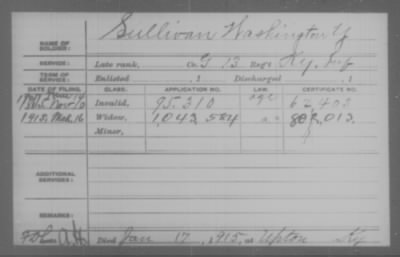 Sullivan Washington
NAME OF SOLDIER:
SERVICE: Late rank, Co. G 13 Reg't Ky. Inf
TERM OF SERVICE: Enlisted , 1 Discharged , 1
DATE OF FILING. CLASS. APPLICATION NO. LAW. CERTIFICATE NO.
Invalid, 95.310 age 62.403
1915, Mch. 16 Widow, 1,043,584 013.
Minor,
ADDITIONAL SERVICES:
REMARKS:
Died Jan 17, 1915, at Upton Ky